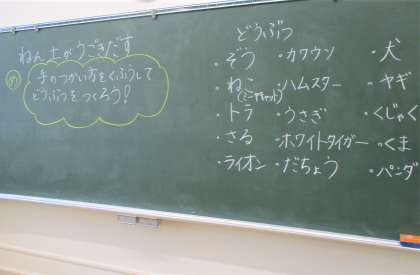 ねん土がうごきだす
め
手のつかい方をくふうして
どうぶつをつくろう!
どうぶつ
・ぞう
・ねこ
(ミーキャット)
・トラ
・さる
・ライオン
・カワウソ
・ハムスター
・うさぎ
・ホワイトタイガー
・だちょう
・犬
・ヤギ
・くじゃく
・くま
・パンダ